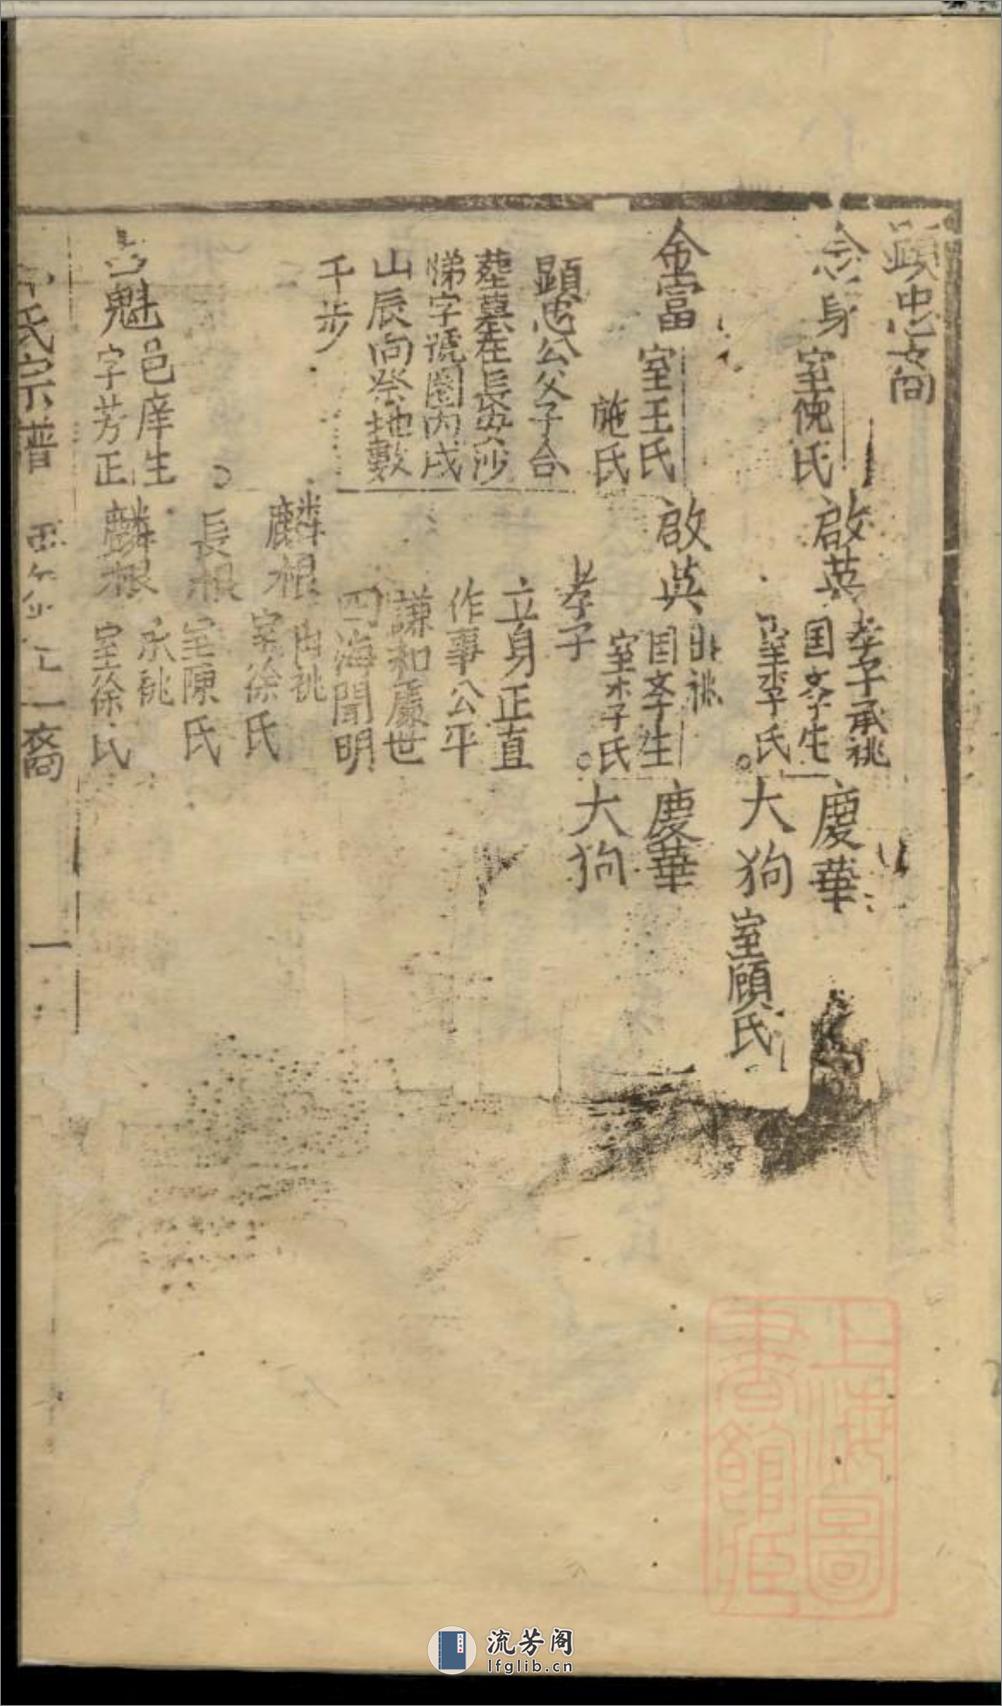 顕忠
念身 室倪氏 啟英 孝子承祧 国孝生 室李氏 慶華
大狗 室顧氏
金富 室王氏 施氏 啟英 祧 国孝生 室李氏 慶華
孝子 大狗
顕忠公父子合
葬墓在長安沙
悌字號圈内戌
山辰向祭地數
千步
立身正直
作事公平
謙和處世
四海聞明
麟根 祧 室徐氏
長根 室陳氏
魁 邑庠生 字芳正 麟根 承祧 室徐氏
氏宗譜 裔 一
上海圖書館藏
流芳阁
lfglib.cn